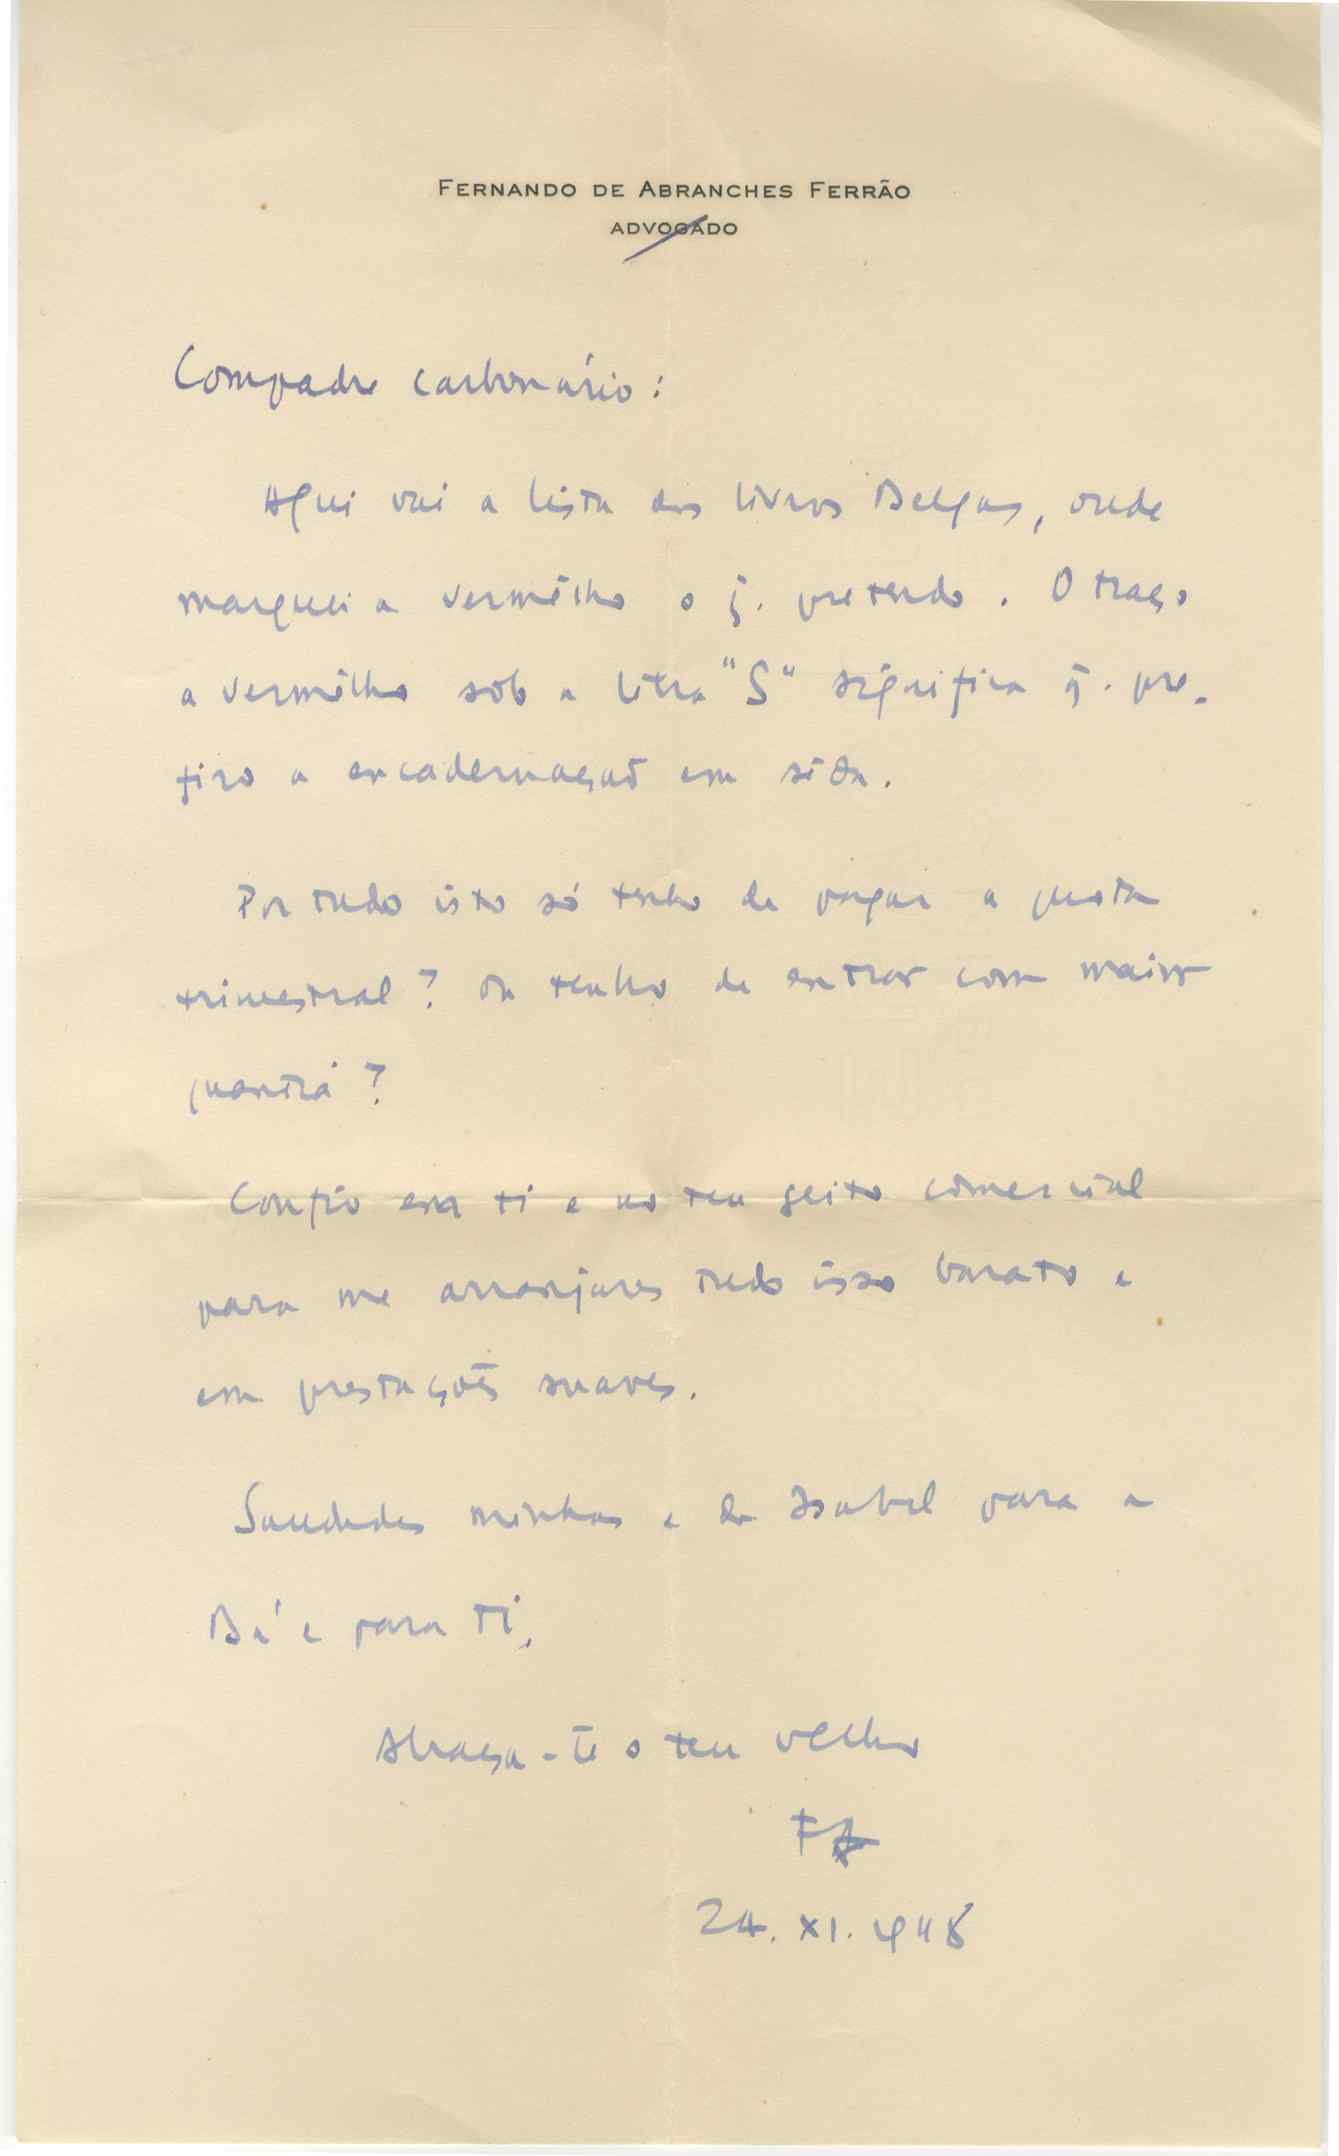 FERNANDO DE ABRANCHES FERRÃO
ADVOGADO
Compadre carbonário:
Aqui vai a lista dos livros Belgas, onde
marquei a vermêlho o q. pretendo. O traço
a vermêlho sob a letra "S" significa q. pre-
firo a encadernação em sêda.
Por tudo isto só tenho de pagar a quota
trimestral? Ou tenho de entrar com maior
quantia?
Confio em ti e no teu geito comercial
para me arranjares tudo isso barato e
em prestações suaves.
Saudades minhas e da Isabel para a
Bá e para ti,
Abraça-te o teu velho
FA
24.XI.948